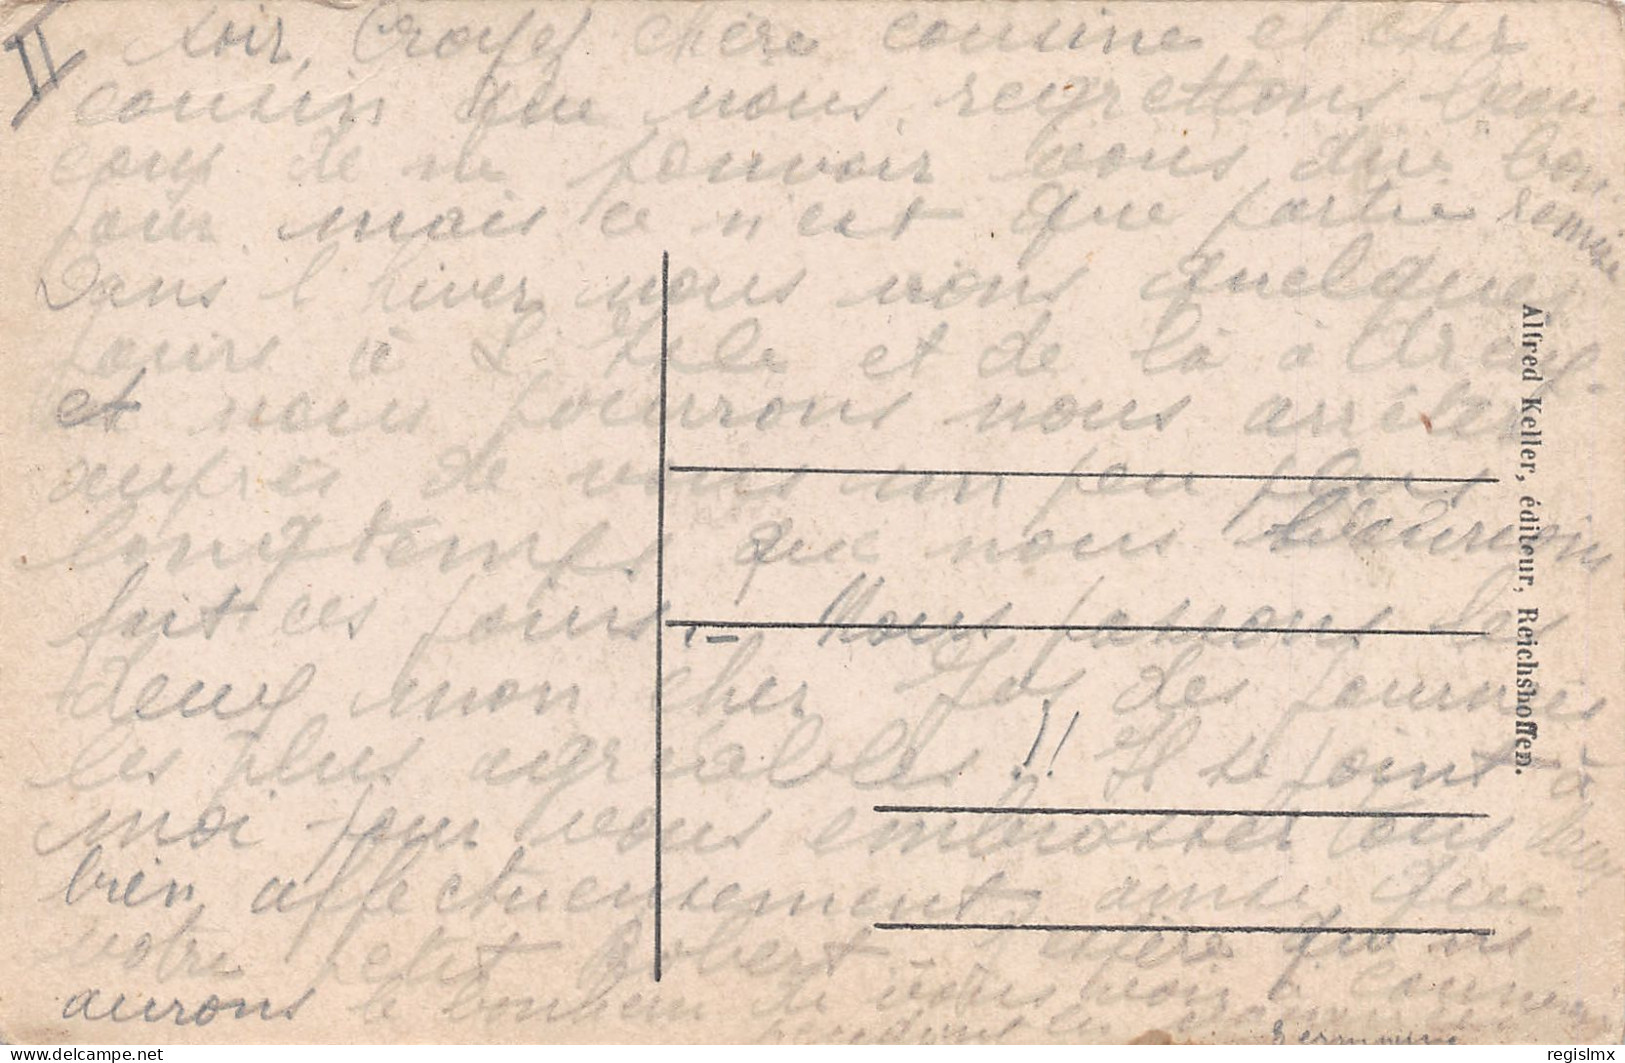 II
soir. Croyez chère cousine et cher
cousin que nous regrettons beau-
coup de ne pouvoir vous dire bon-
jour mais ce n'est que partie remise
Dans l'hiver nous irons quelques
jours à L'Isle et de là à
et nous pourrons nous arrêter
auprès de vous un peu plus
longtemps que nous
fait ces jours. - Nous passons les
deux mon cher des journées
les plus agréables!! Il se joint à
moi pour vous embrasser tous deux
bien affectueusement ainsi que
votre petit Robert -
aurons le bonheur de vous voir à
pendant les
Germaine
Alfred Keller, éditeur, Reichshoffen.
regislmx
delcampe.net